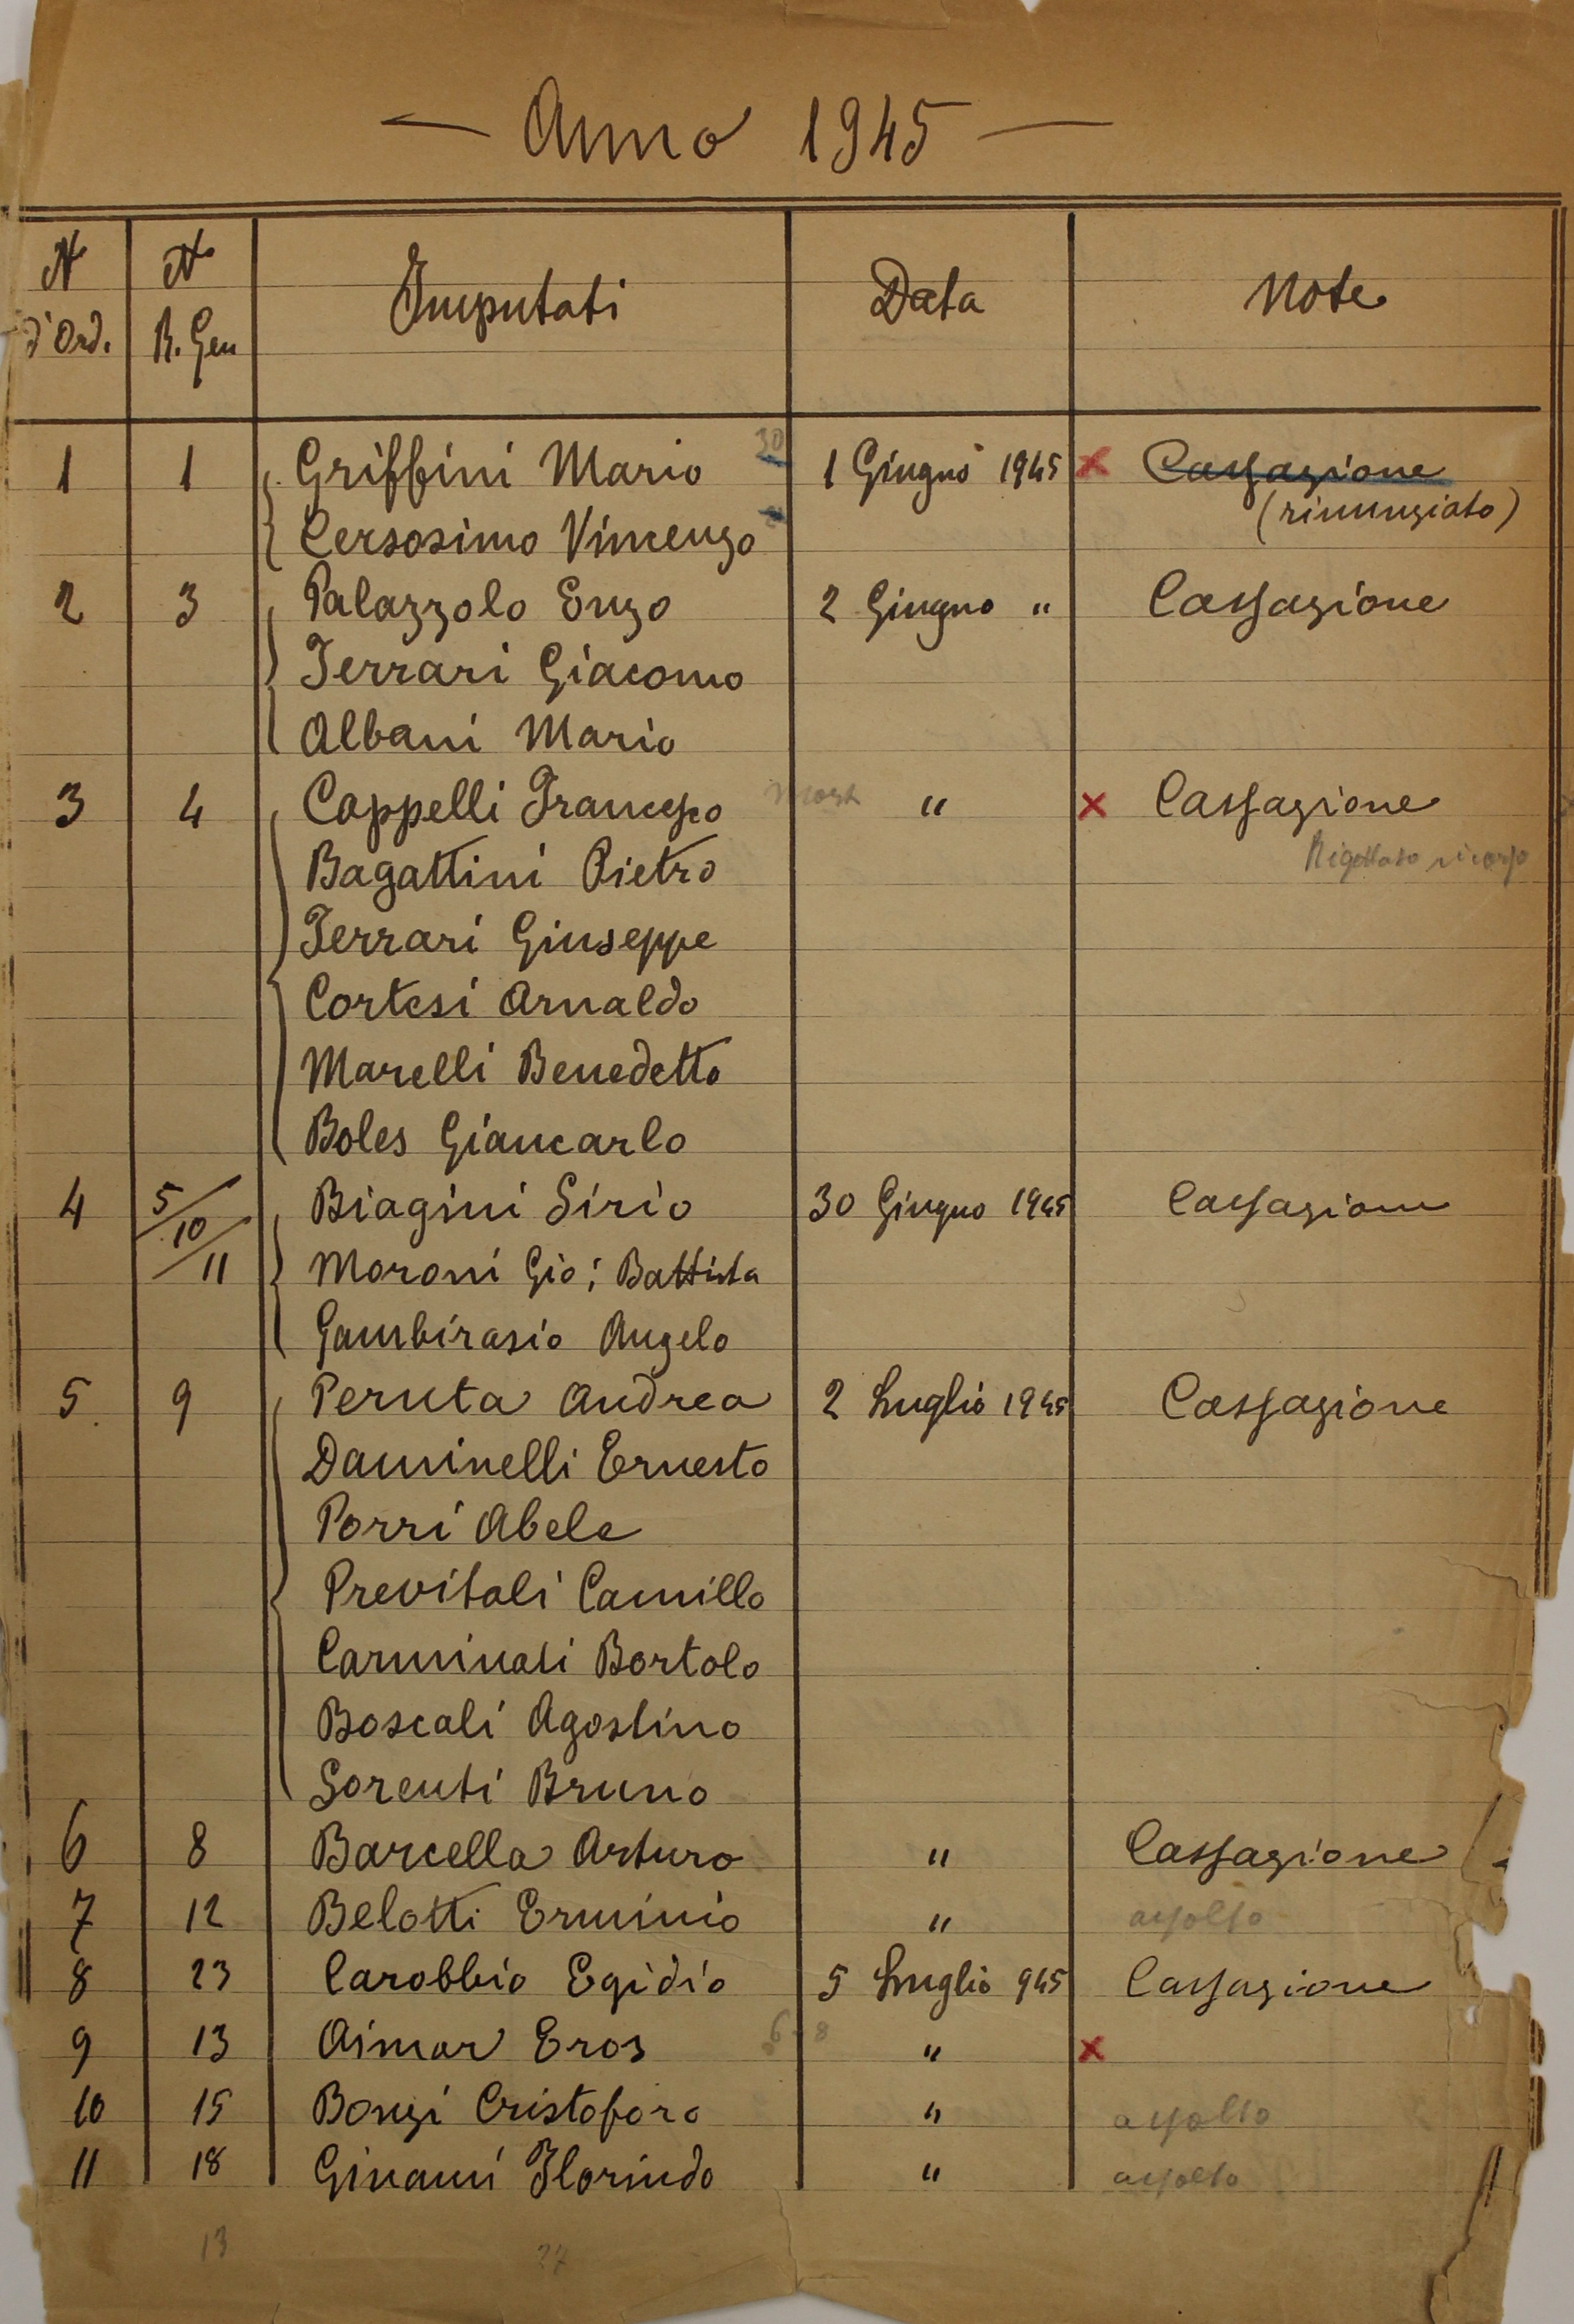 — Anno 1945 —
N d'Ord. N R. Gen Imputati Data Note
1 1 Griffini Mario 30 1 Giugno 1945 x Cassazione
(rinunziato)
Cersosimo Vincenzo
2 3 Palazzolo Enzo 2 Giugno " Cassazione
Ferrari Giacomo
Albani Mario
3 4 Cappelli Francesco " x Cassazione
Rigettato ricorso
Bagattini Pietro
Ferrari Giuseppe
Cortesi Arnaldo
Marelli Benedetto
Boles Giancarlo
4 5/10/11 Biagini Sirio 30 Giugno 1945 Cassazione
Moroni Gio: Battista
Gambirasio Angelo
5. 9 Peruta Andrea 2 Luglio 1945 Cassazione
Daminelli Ernesto
Porri Abele
Previtali Camillo
Carminati Bortolo
Boscali Agostino
Sorenti Bruno
6 8 Barcella Arturo " Cassazione
7 12 Belotti Erminio " assolto
8 23 Carobbio Egidio 5 Luglio 945 Cassazione
9 13 Aimar Eros " x
10 15 Bonzi Cristoforo " assolto
11 18 Ginanni Florindo " assolto
13 27